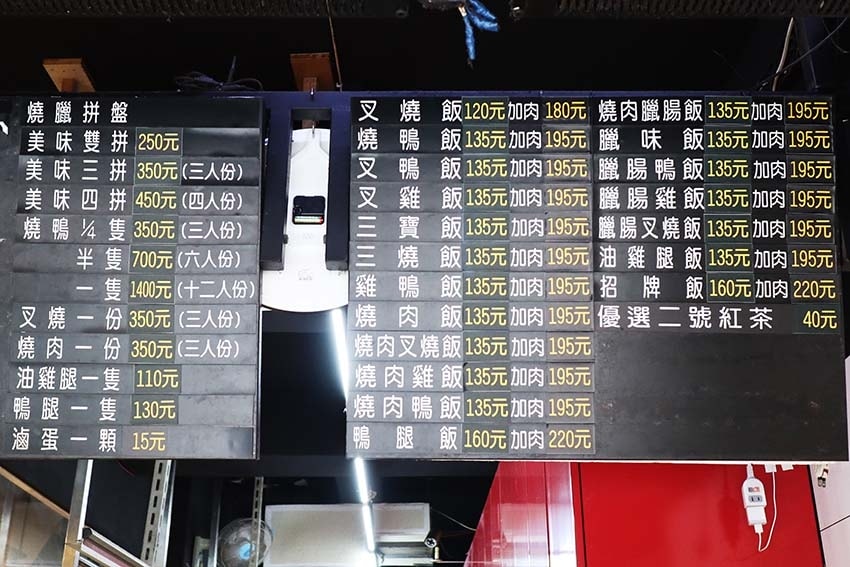 燒臘拼盤
美味雙拼 250元
美味三拼 350元(三人份)
美味四拼 450元(四人份)
燒鴨¼隻 350元(三人份)
半隻 700元(六人份)
一隻 1400元(十二人份)
叉燒一份 350元(三人份)
燒肉一份 350元(三人份)
油雞腿一隻 110元
鴨腿一隻 130元
滷蛋一顆 15元
叉燒飯 120元 加肉 180元
燒鴨飯 135元 加肉 195元
叉鴨飯 135元 加肉 195元
叉雞飯 135元 加肉 195元
三寶飯 135元 加肉 195元
三燒飯 135元 加肉 195元
雞鴨飯 135元 加肉 195元
燒肉飯 135元 加肉 195元
燒肉叉燒飯 135元 加肉 195元
燒肉雞飯 135元 加肉 195元
燒肉鴨飯 135元 加肉 195元
鴨腿飯 160元 加肉 220元
燒肉臘腸飯 135元 加肉 195元
臘味飯 135元 加肉 195元
臘腸鴨飯 135元 加肉 195元
臘腸雞飯 135元 加肉 195元
臘腸叉燒飯 135元 加肉 195元
油雞腿飯 135元 加肉 195元
招牌飯 160元 加肉 220元
優選二號紅茶 40元